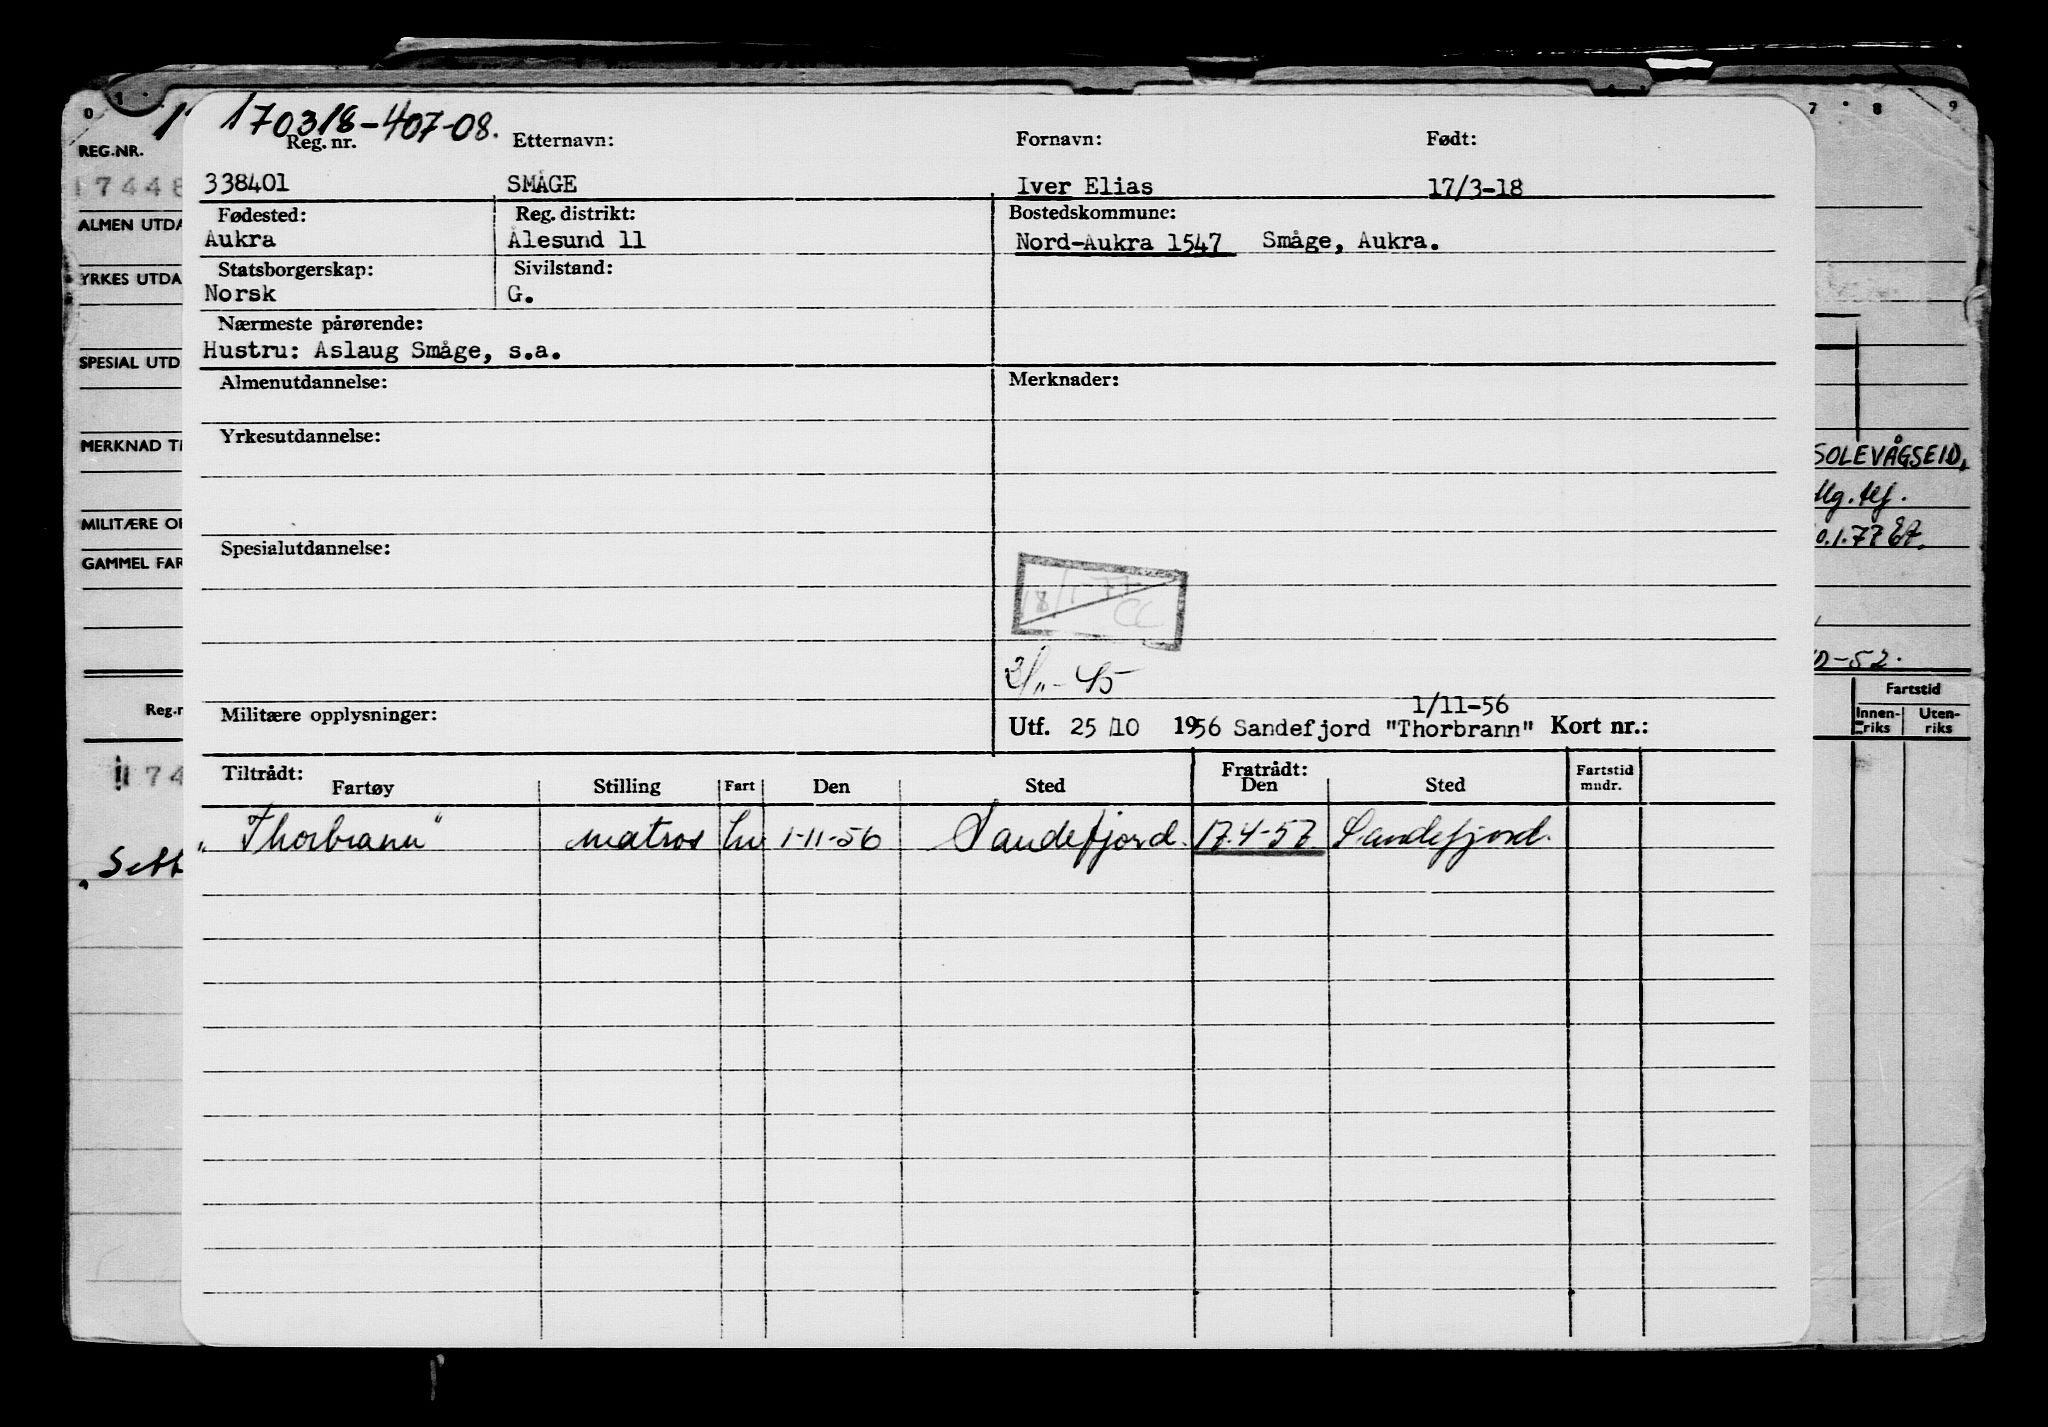 170318-407-08.
Reg. nr. Etternavn: Fornavn: Født:
338401 SMÅGE Iver Elias 17/3-18
Fødested: Reg. distrikt: Bostedskommune:
Aukra Ålesund 11 Nord-Aukra 1547 Småge, Aukra.
Statsborgerskap: Sivilstand:
Norsk G.
Nærmeste pårørende:
Hustru: Aslaug Småge, s.a.
Almenutdannelse: Merknader:
Yrkesutdannelse:
Spesialutdannelse:
18/1-77
CC
2/11-45
1/11-56
Militære opplysninger: Utf. 25/10 1956 Sandefjord "Thorbrann" Kort nr.:
Tiltrådt: Fratrådt: Fartstid
Fartøy Stilling Fart Den Sted Den Sted mndr.
"Thorbrann" matros 1-11-56 Sandefjord. 17.4-57 Sandefjord.
0 1
REG.NR.
17448
ALMEN UTDA
YRKES UTDA
SPESIAL UTD
MERKNAD TI
MILITÆRE OP
GAMMEL FAR
Reg.n
174
7 8 9
SOLEVÅGSEID,
tlf.
0.1.77
-52.
Fartstid
Innen- Uten-
riks riks